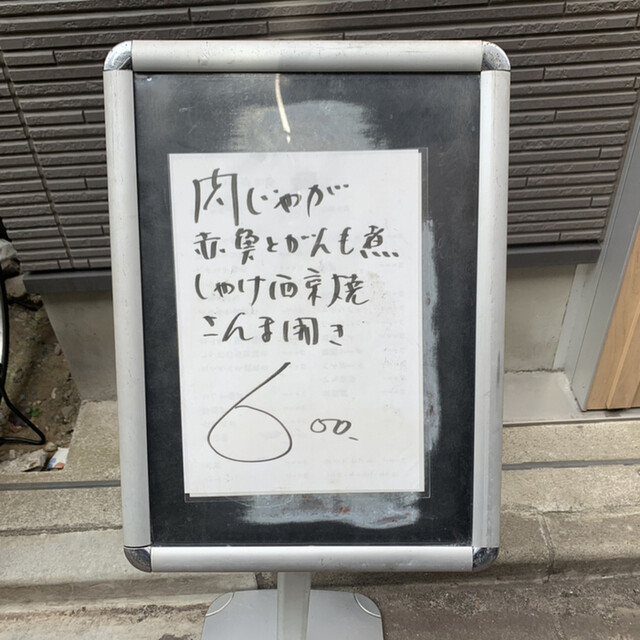 肉じゃが
赤魚とがんも煮
しゃけ西京焼
さんま開き
600.